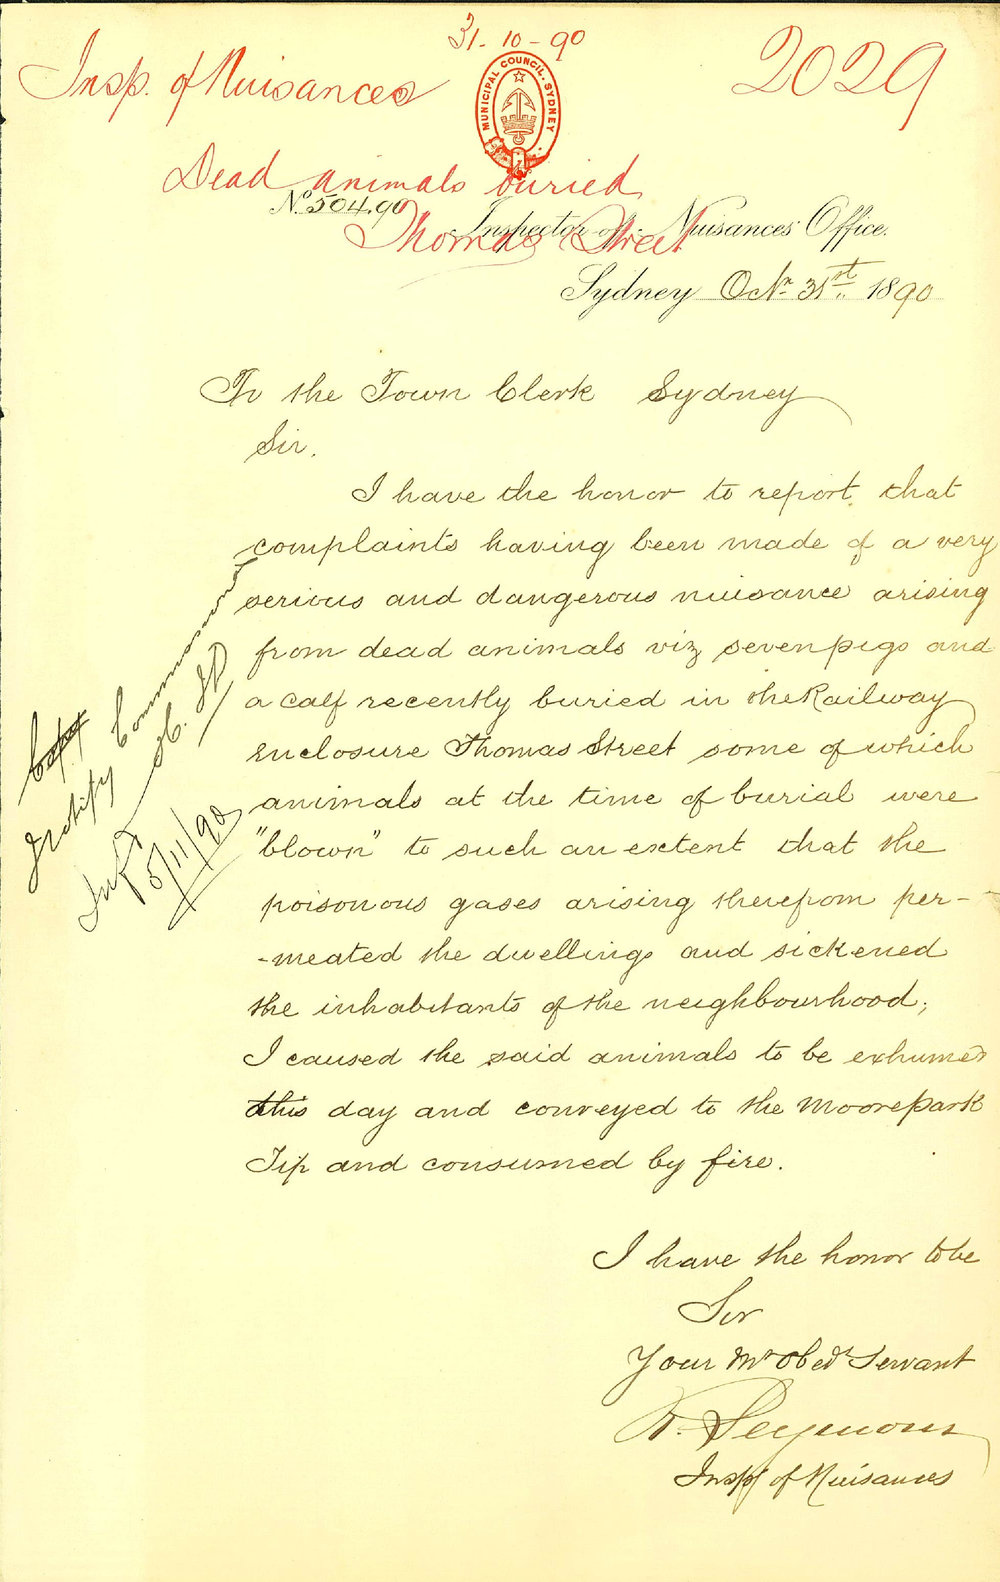 31-10-90
Insp. of Nuisances
2029
MUNICIPAL COUNCIL. SYDNEY
Dead animals buried
Thomas Street
No. 504.90
Inspector of Nuisances Office.
Sydney Octr. 31st. 1890
To the Town Clerk Sydney
Sir.
I have the honor to report that
complaints having been made of a very
serious and dangerous nuisance arising
from dead animals viz seven pigs and
a calf recently buried in the Railway
Enclosure Thomas Street some of which
animals at the time of burial were
"blown" to such an extent that the
poisonous gases arising therefrom per-
-meated the dwellings and sickened
the inhabitants of the neighbourhood;
I caused the said animals to be exhumed
this day and conveyed to the Moore Park
Tip and consumed by fire.
I have the honor to be
Sir
Your Mt Obedt Servant
R. Seymour
Insp of Nuisances
Copy
Notify
5/11/90